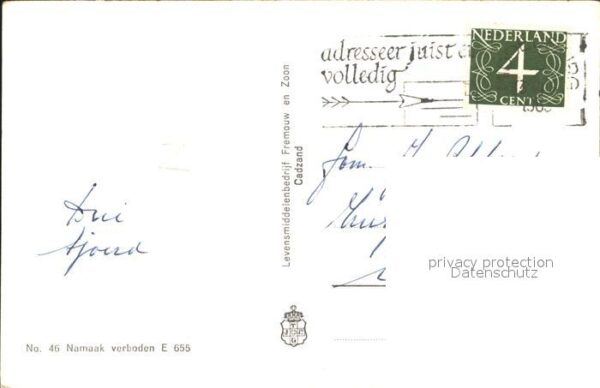 adresseer juist en
volledig
NEDERLAND
4
CENT
Levensmiddelenbedrijf Fremouw en Zoon
Cadzand
Fam.
Sjoerd
privacy protection
Datenschutz
No. 46 Namaak verboden E 655